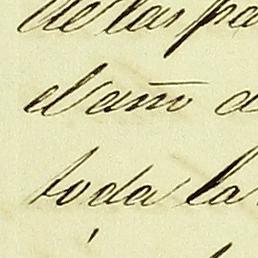 de las pa
el año d
toda la